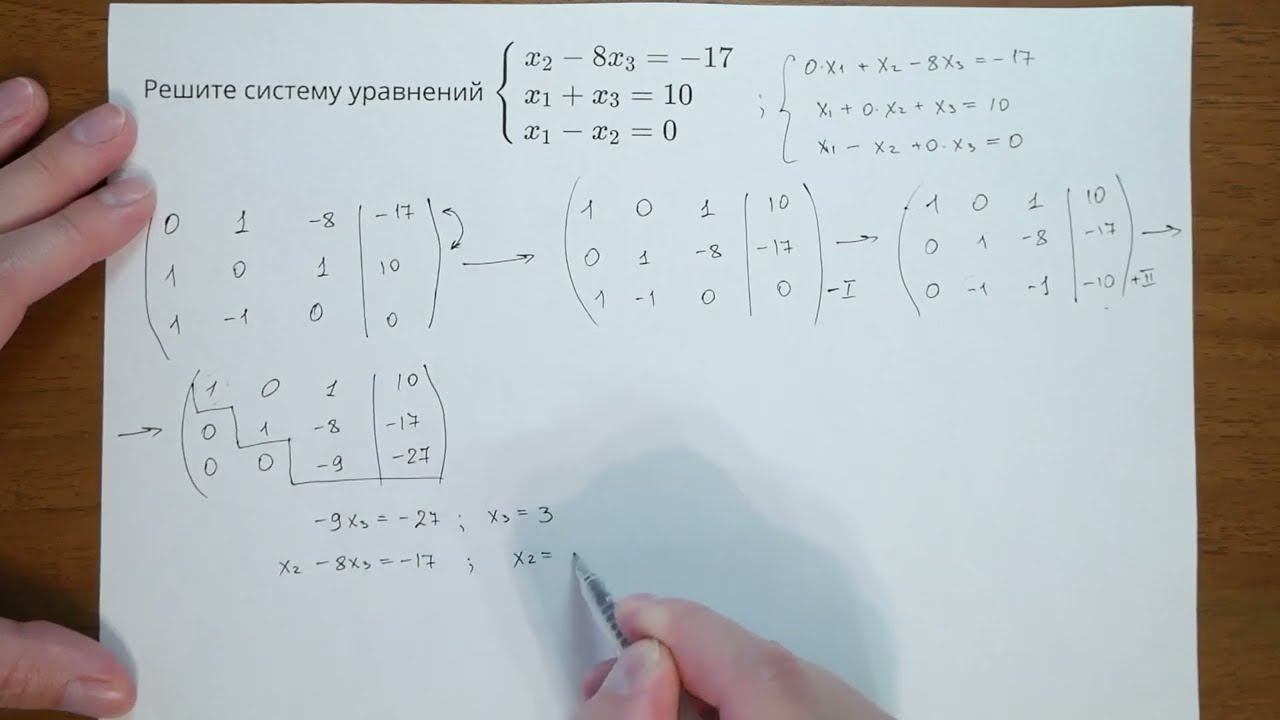 Решите систему уравнений { x₂ − 8x₃ = −17
x₁ + x₃ = 10
x₁ − x₂ = 0
; { 0·x₁ + x₂ − 8x₃ = −17
x₁ + 0·x₂ + x₃ = 10
x₁ − x₂ + 0·x₃ = 0
( 0 1 −8 | −17 )
( 1 0 1 | 10 )
( 1 −1 0 | 0 )
→ ( 1 0 1 | 10 )
( 0 1 −8 | −17 )
( 1 −1 0 | 0 ) −I
→ ( 1 0 1 | 10 )
( 0 1 −8 | −17 )
( 0 −1 −1 | −10 ) +II
→
→ ( 1 0 1 | 10 )
( 0 1 −8 | −17 )
( 0 0 −9 | −27 )
−9x₃ = −27 ; x₃ = 3
x₂ − 8x₃ = −17 ; x₂ =